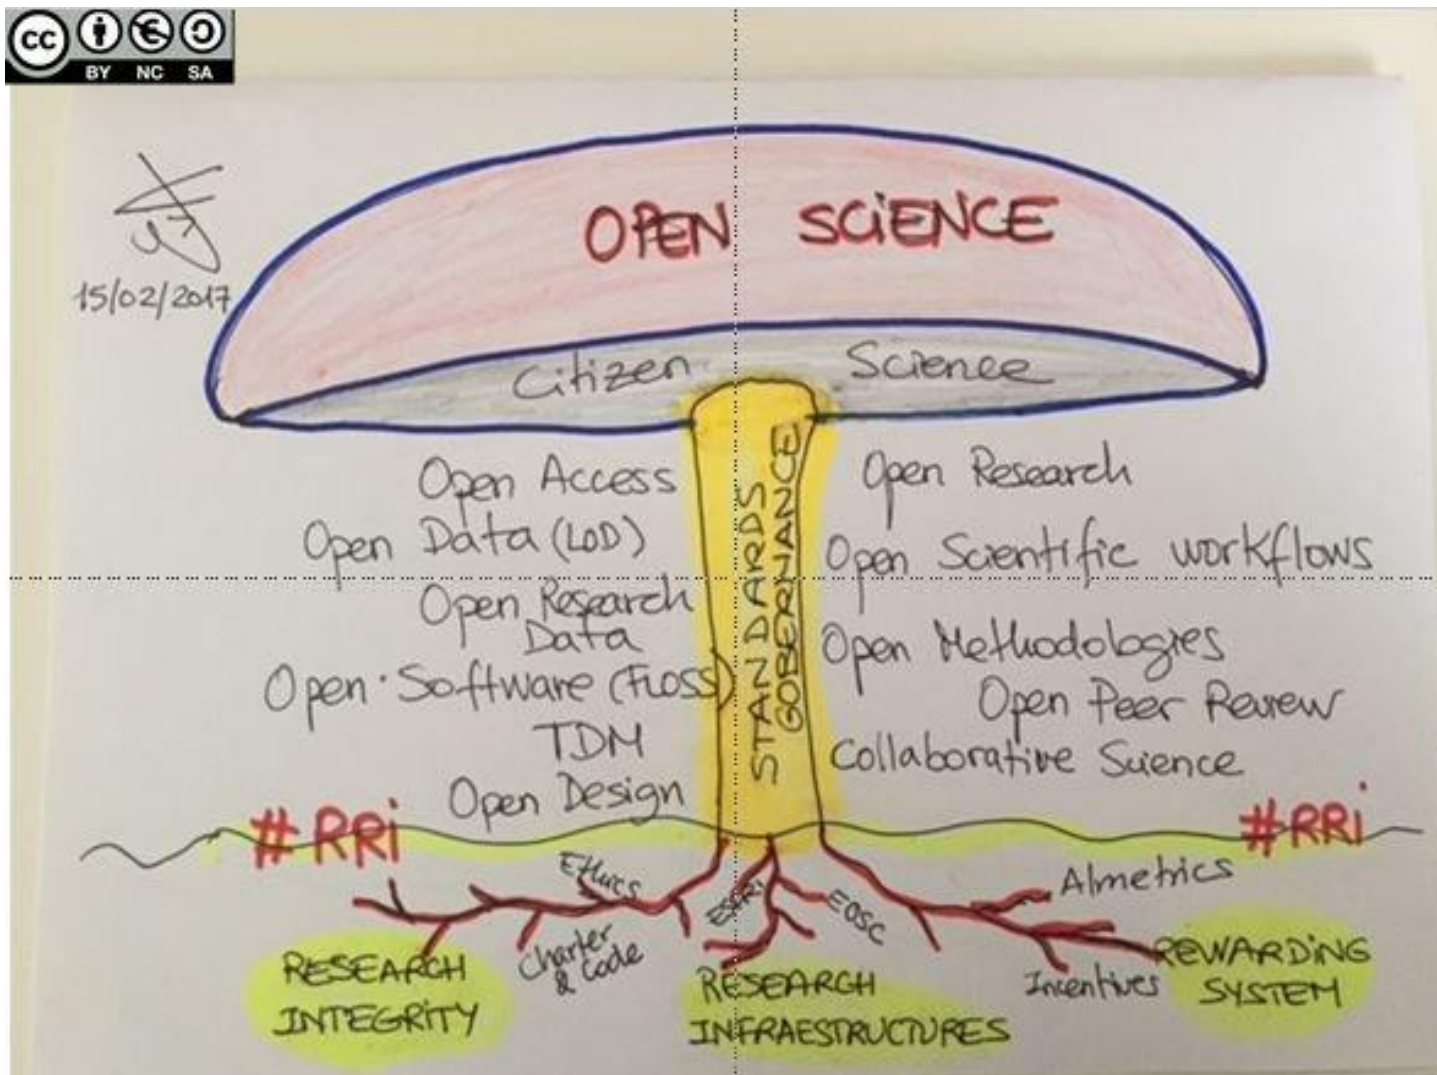 cc
BY NC SA
15/02/2017
OPEN SCiENCE
Citizen Science
STANDARDS
GOBERNANCE
Open Access
Open Data (LOD)
Open Research
Data
Open Software (FLOSS)
TDM
Open Design
Open Research
Open Scientific workflows
Open Methodologies
Open Peer Review
Collaborative Science
#RRi
#RRi
Ethics
Charter
& Code
ESFRi
EOSC
Almetrics
Incentives
RESEARCH
INTEGRiTY
RESEARCH
INFRAESTRUCTURES
REWARDING
SYSTEM